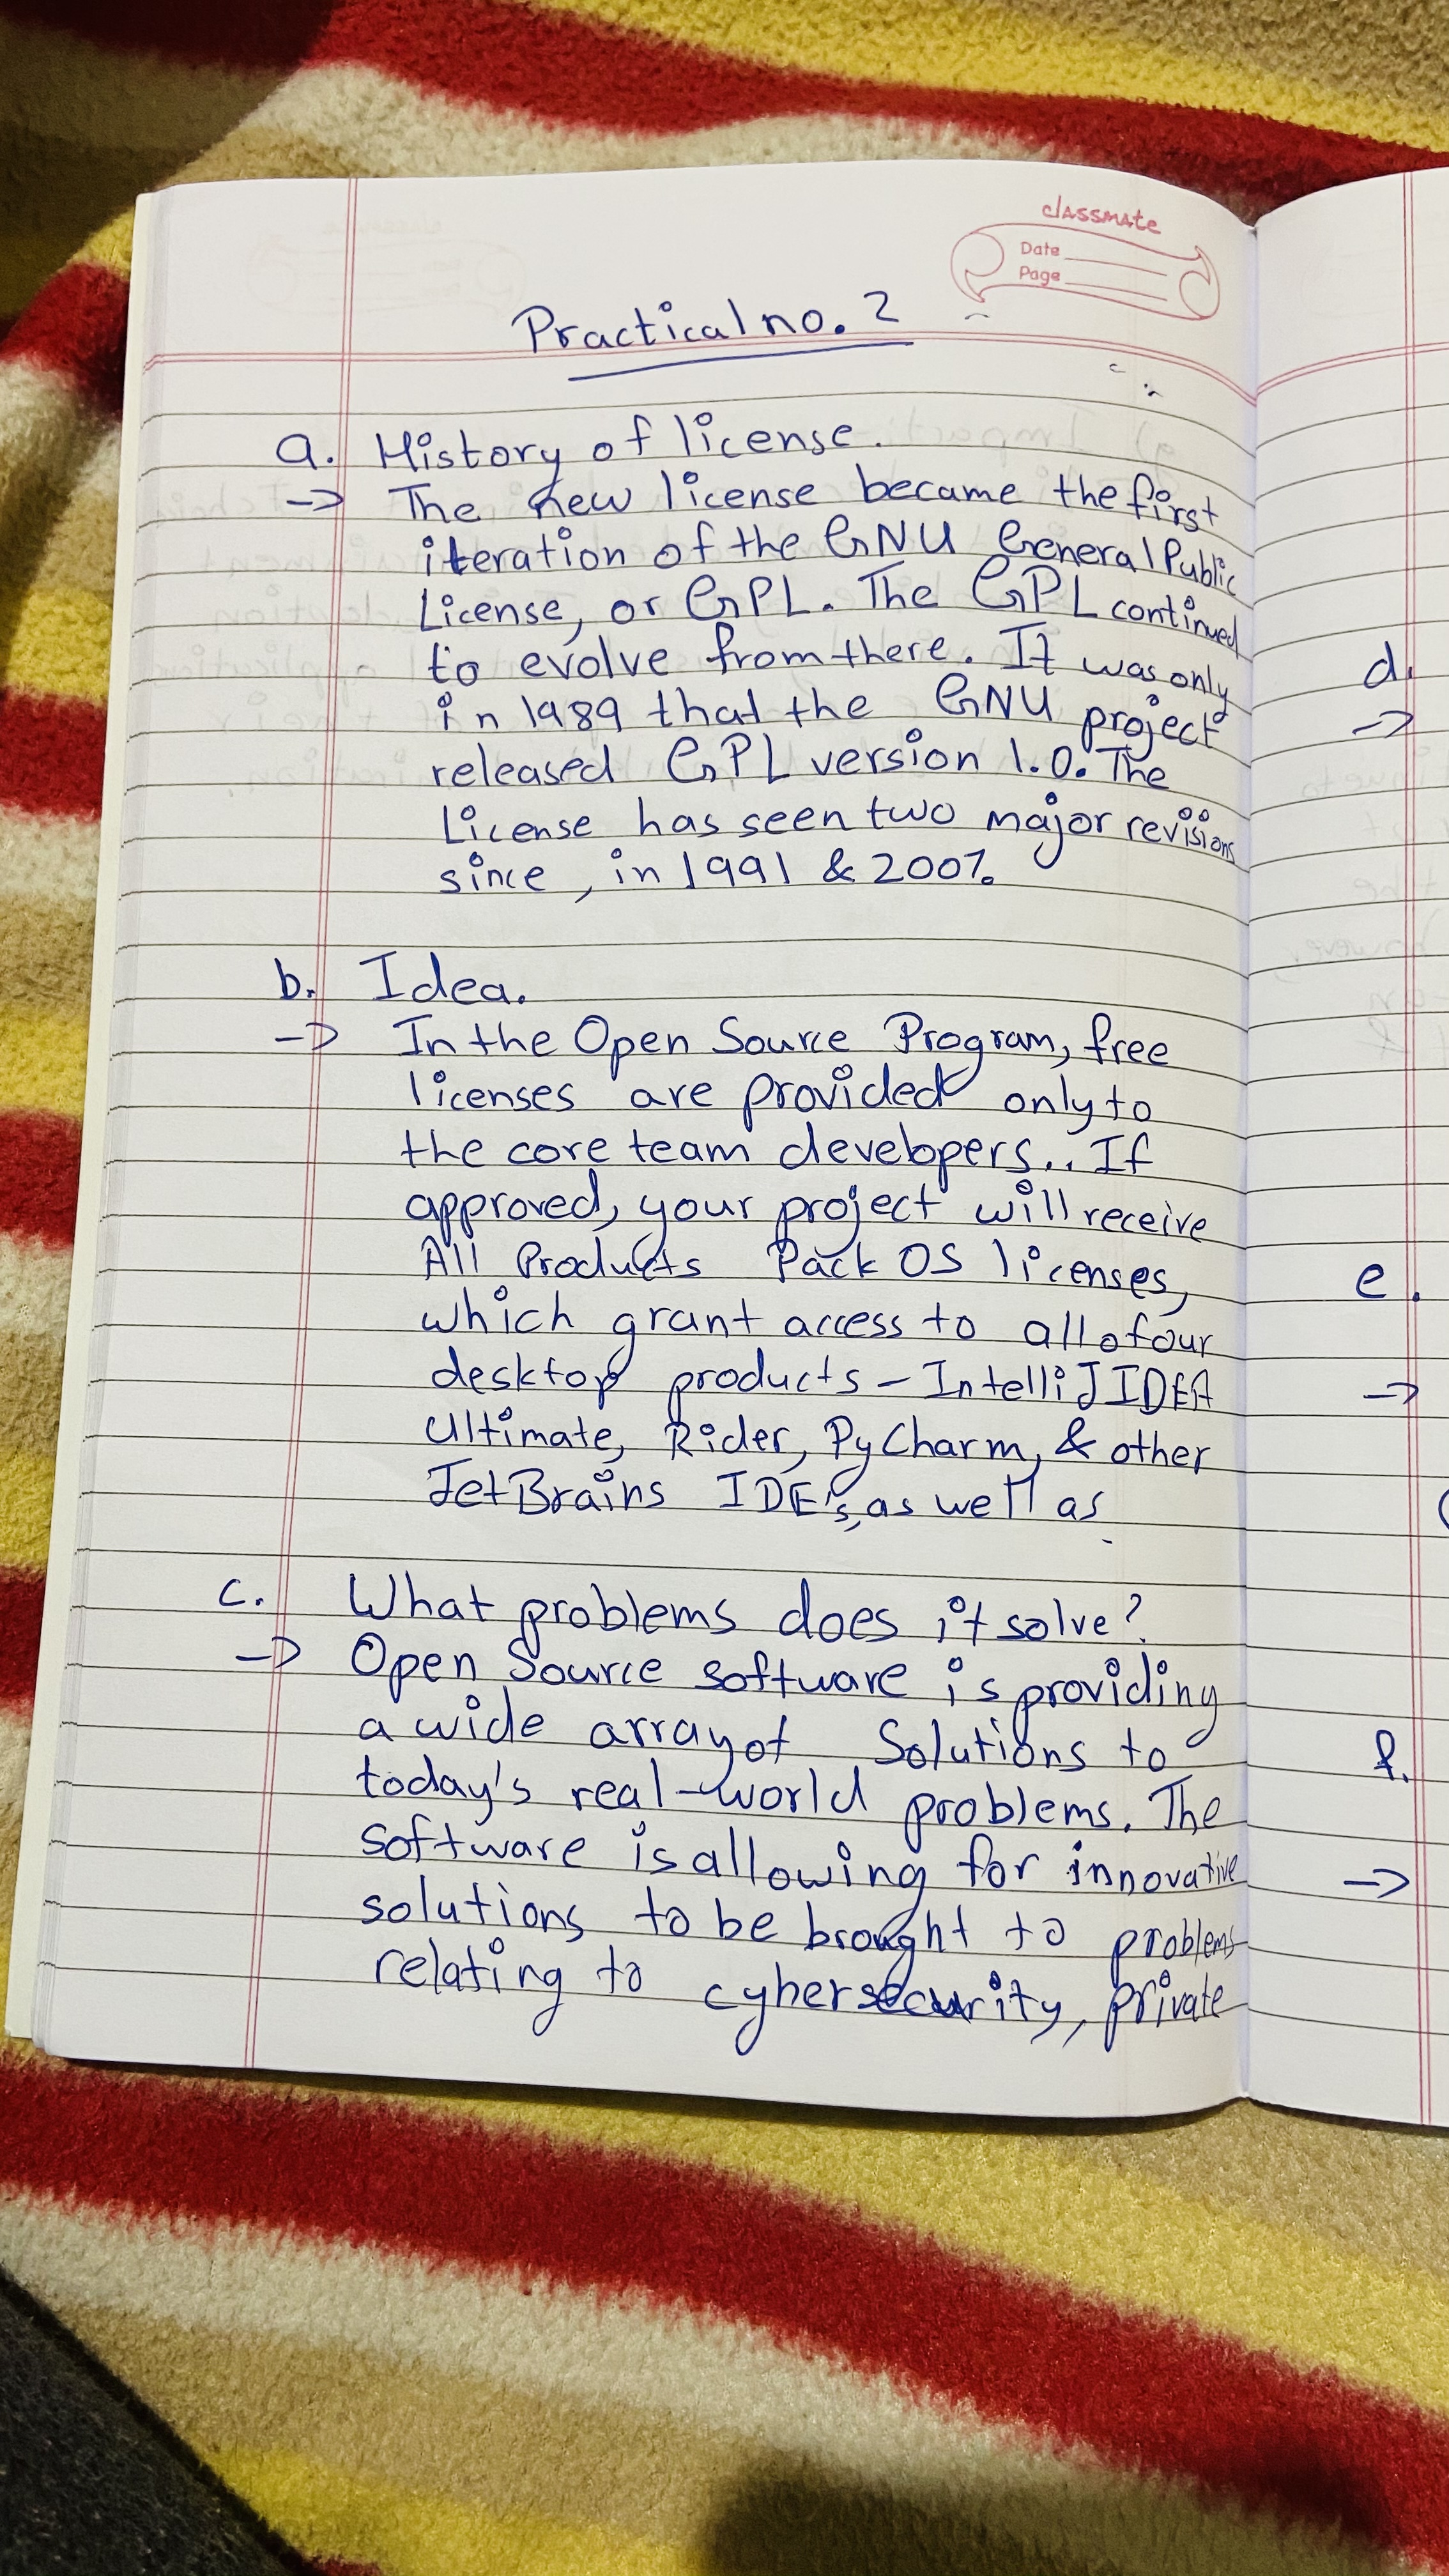 classmate
Date
Page
Practical no. 2
a. History of license.
→ The new license became the first
iteration of the GNU General Public
License, or GPL. The GPL continued
to evolve from there. It was only
in 1989 that the GNU project
released GPL version 1.0. The
License has seen two major revisions
since, in 1991 & 2007.
b. Idea.
→ In the Open Source Program, free
licenses are provided only to
the core team developers.. If
approved, your project will receive
All Products Pack OS licenses,
which grant access to all of our
desktop products - IntelliJ IDEA
Ultimate, Rider, PyCharm, & other
JetBrains IDE's, as well as
c. What problems does it solve?
→ Open Source software is providing
a wide array of Solutions to
today's real-world problems. The
software is allowing for innovative
solutions to be brought to problems
relating to cybersecurity, private
d.
→
e.
→
f.
→